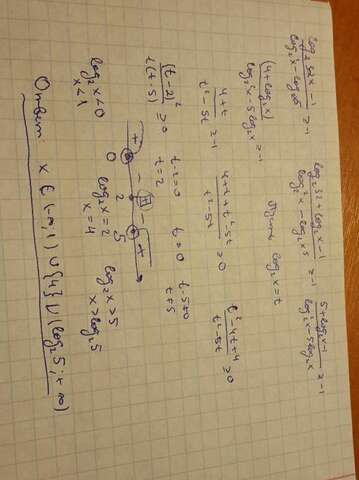 log₂32x-1 / log₂²x - log₂x⁵ ≥ -1 log₂32+log₂x-1 / log₂²x-log₂x⁵ ≥ -1 5+log₂x-1 / log₂²x-5log₂x ≥ -1
(4+log₂x) / log₂²x-5log₂x ≥ -1 Пусть log₂x=t
4+t / t²-5t ≥ -1 4+t+t²-5t / t²-5t ≥ 0 t²-4t+4 / t²-5t ≥ 0
(t-2)² / t(t-5) ≥ 0 t-2=0 t=0 t-5≠0
t=2 t≠5
+ - - +
0 2 5
log₂x<0 log₂x=2 log₂x>5
x<1 x=4 x>log₂5
Ответ: x ∈ (-∞;1) ∪ {4} ∪ (log₂5; +∞)